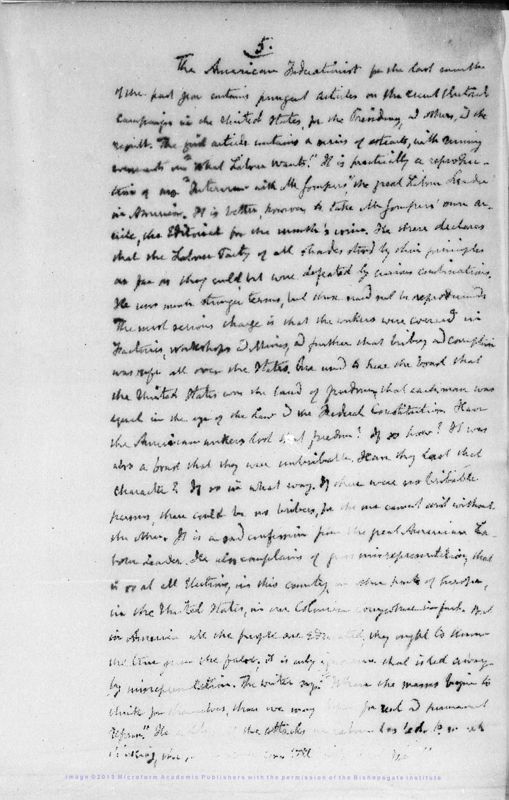 5.
The American Federationist for the last month
of the past year contains pungent articles on the recent Electoral
Campaign in the United States, for the Presidency, & others, & the
results. The first article contains a series of extracts, with running
comments on "What Labour Wants." It is practically a reproduc-
tion of an "Interview with Mr Gompers," the great Labour Leader
in America. It is better, however, to take Mr Gompers' own ar-
ticle, the Editorial for the month's view. He there declares
that the Labour Party of all shades stood by their principles
as far as they could but were defeated by various combinations.
He uses much stronger terms, but these need not be reproduced.
The most serious charge is that the workers were coerced in
Factories, workshops & Mines, & further that bribery & corruption
was rife all over the States. One used to hear the boast that
the United States was the land of freedom, that each man was
equal in the eye of the Law & the Federal Constitution. Have
the American workers lost that freedom? If so how? It was
also a boast that they were unbribable. Have they lost that
character? If so in what way. If there were no bribable
persons, there could be no bribers, for the one cannot exist without
the other. It is a sad confession from the great American La-
bour Leader. He also complains of gross misrepresentation, that
is so at all Elections, in this country, in other parts of Europe,
in the United States, in our Colonies everywhere in fact. But
in America all the people are Educated, they ought to know
the true from the false, it is only ignorance that is led away
by misrepresentation. The writer says "Where the masses begin to
think for themselves, then we may hope for real & permanent
reform." He the attacks on labour has led to
thinking,
Image ©2013 Microform Academic Publishers with the permission of the Bishopsgate Institute